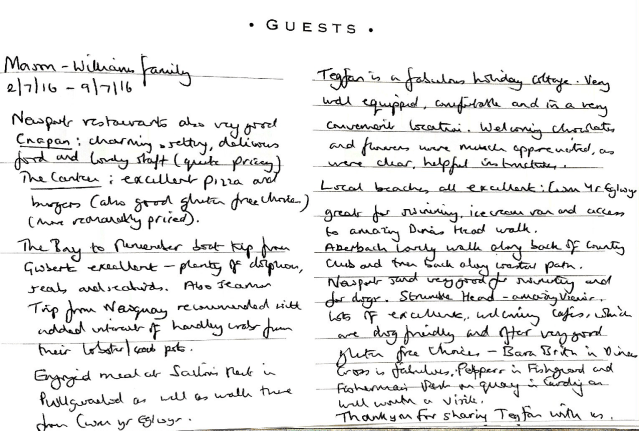 • GUESTS •
Mason-Williams family
2/7/16 - 9/7/16
Newport restaurants also very good
Cnapan: charming setting, delicious
food and lovely staff (quite pricey)
The Canteen: excellent pizza and
burgers (also good gluten free choices)
(more reasonably priced).
The Bay to Remember boat trip from
Gwbert excellent - plenty of dolphins,
seals and seabirds. Also
Trip from Newquay recommended with
added interest of handling crabs from
their lobster/crab pots.
Enjoyed meal at Sailors in
Pwllgwaelod as well as walk there
from Cwm yr Eglwys.
Tegfan is a fabulous holiday cottage. Very
well equipped, comfortable and in a very
convenient location. Welcoming chocolates
and flowers were much appreciated, as
were clear, helpful instructions.
Local beaches all excellent: Cwm Yr Eglwys
great for swimming, icecream van and access
to amazing Dinas Head walk.
Aberbach lovely walk along back of country
club and then back along coastal path.
Newport sand very good for swimming and
for dogs. Strumble Head - amazing views.
Lots of excellent, welcoming cafes, which
are dog friendly and offer very good
gluten free choices - Bara Brith in Dinas
Cross is fabulous, Peppers in Fishguard and
Fisherman's on quay in Cardigan
well worth a visit.
Thankyou for sharing Tegfan with us.